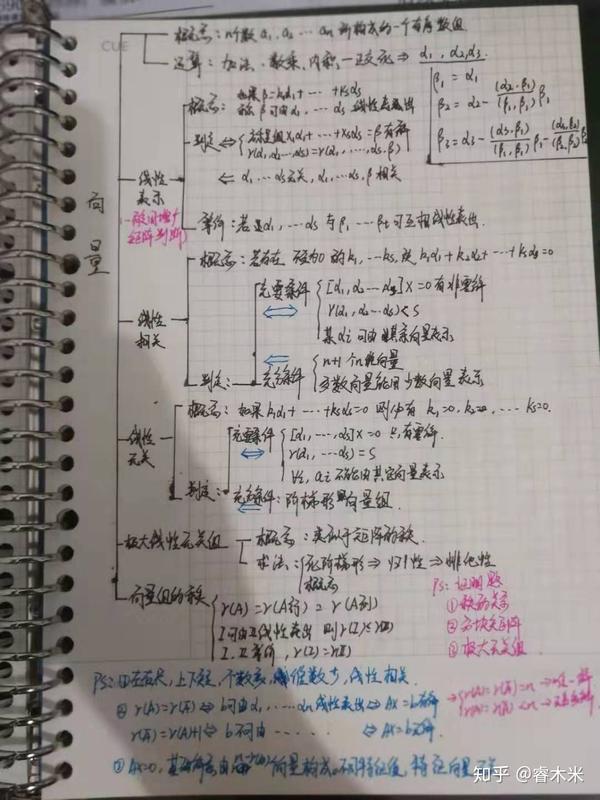 概念：n个数 a₁, a₂ … aₙ 所构成的一个有序数组
CUE
运算：加法、数乘、内积、正交 ⇒ α₁, α₂, α₃
β₁ = α₁
β₂ = α₂ - (α₂·β₁)/(β₁,β₁) β₁
β₃ = α₃ - (α₃·β₁)/(β₁,β₁) β₁ -
向量
线性表示
矩阵判断
概念：如果 β = k₁α₁ + … + ksαs
β可由α₁ … αs 线性表出
判定 ⇔ 方程组 x₁α₁ + … + xsαs = β 有解
r(α₁, α₂ … αs) = r(α₁, … , αs, β)
⇐ α₁ … αs 无关, α₁, … αs, β 相关
等价：若α₁, … αs 与 β₁ … βt 可互相线性表出.
线性相关
概念：若存在 不全为0 的 k₁, … ks, 使 k₁α₁ + k₂α₂ + … + ksαs = 0
判定：
充要条件 ⇔
[α₁, α₂ … αs] X = 0 有非零解
r(α₁, α₂ … αs) < s
某 αi 可由其余向量表示
充分条件 ⇐
n+1 个 n维向量
多数向量能用少数向量表示
线性无关
概念：如果 k₁α₁ + … + ksαs = 0 则必有 k₁ = 0, k₂ = 0, … ks = 0.
判定：
充要条件 ⇔
[α₁, … , αs] X = 0 只有零解.
r(α₁, … αs) = s
∀i, αi 不能由其它向量表示
充分条件：阶梯形向量组.
极大线性无关组
概念：类似于矩阵的秩.
求法：阶梯形 ⇒ 归一性 ⇒ 排他性
概念
向量组的秩
r(A) = r(A行) = r(A列)
I 可由 II 线性表出 则 r(I) ≤ r(II)
I. II 等价, r(I) = r(II)
PS：证明题
① 秩的关系
② 分块矩阵
③ 极大无关组.
PS：① 左右, 上下, 个数多, 维数少, 线性相关.
② r(A) = r(Ā) ⇔ b可由α₁, … αn 线性表出 ⇔ Ax = b 有解
r(A) = r(Ā) = n
r(A) = r(Ā) < n
r(Ā) = r(A)+1 ⇔ b 不可由 … ⇔ Ax = b 无解.
③ Ax = 0, 向量构成. 不同特征值, 特征向量
知乎 @睿木米